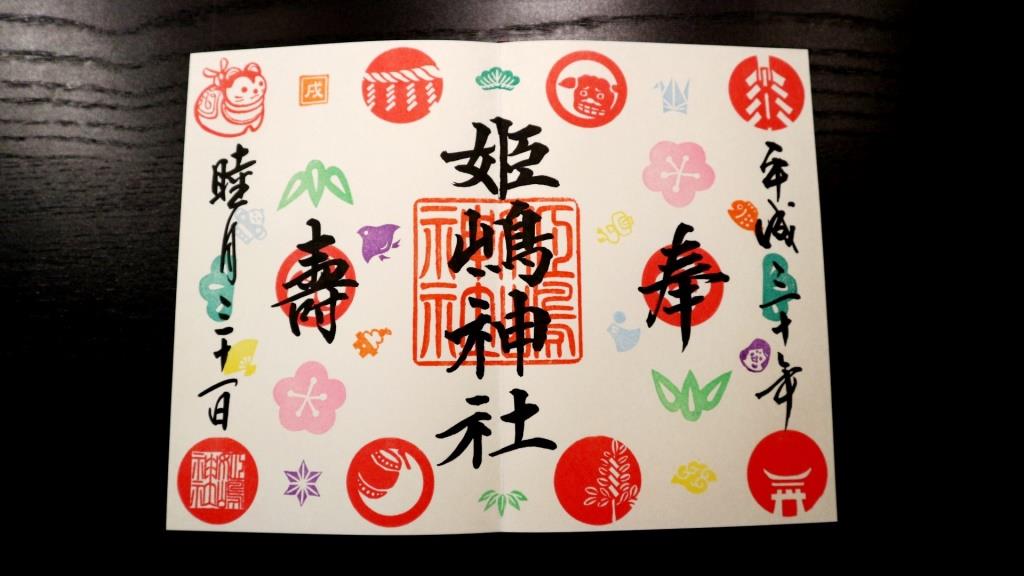 平成三十年
奉
姫嶋神社
姫嶋
神社
壽
睦月二十一日
戌
姫嶋
神社